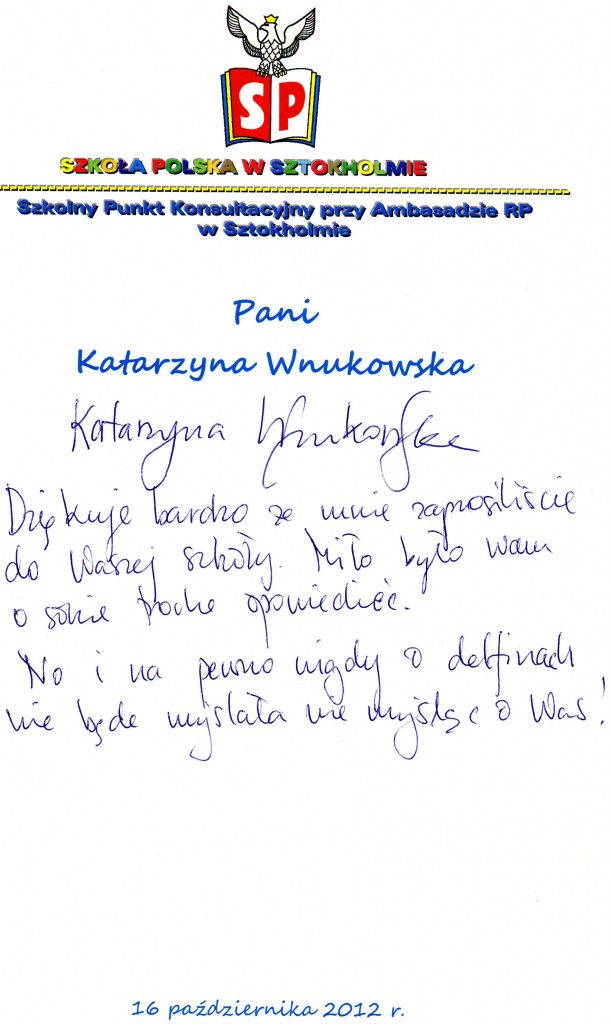 SP
SZKOŁA POLSKA W SZTOKHOLMIE
Szkolny Punkt Konsultacyjny przy Ambasadzie RP
w Sztokholmie
Pani
Katarzyna Wnukowska
Katarzyna Wnukowska
Dziękuję bardzo ze mnie zaprosiliście
do Waszej szkoły. Miło było wam
o sobie troche opowiedieć.
No i na pewno nigdy o delfinach
nie będe myslała nie myśląc o Was!
16 października 2012 r.